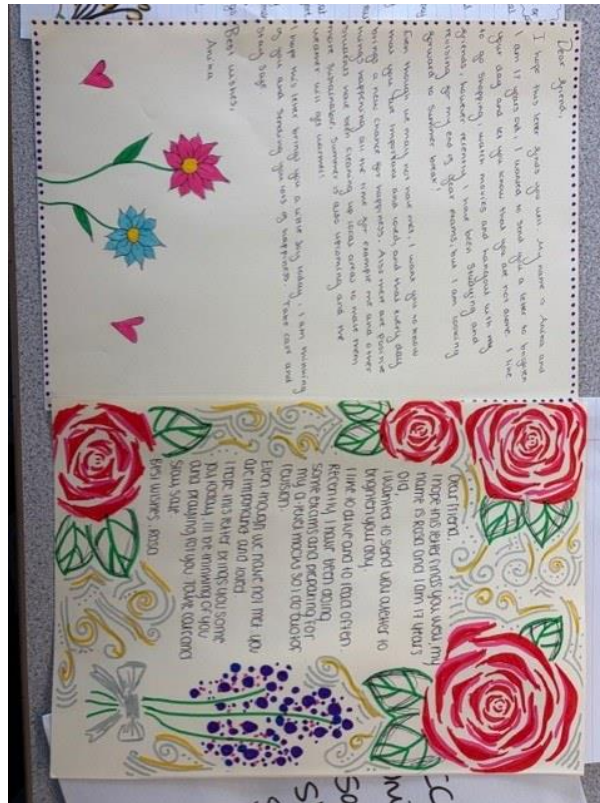 Dear friend,
I hope this letter finds you well. My name is Anika and
I am 17 years old. I wanted to send you a letter to brighten
your day and let you know that you are not alone. I like
to go shopping, watch movies and hangout with my
friends, however recently I have been studying and
revising for my end of year exams, but I am looking
forward to summer break!
Even though we may not have met, I want you to know
that you are important and loved, and that every day
brings a new chance for happiness. Also there are positive
things happening all the time for example me and other
students have been cleaning up local areas to make them
more sustainable. Summer is also upcoming and the
weather will get warmer!
I hope this letter brings you a little joy today. I am thinking
of you and sending you lots of happiness. Take care and
stay safe.
Best wishes,
Anika
Dear friend,
I hope this letter finds you well, my
name is Rosa and I am 17 years
old,
I wanted to send you a letter to
brighten your day,
I like to draw and to read often
Recently, I have been doing
some exams and preparing for
my a-level mocks so I do a lot of
revision
Even though we have not met you
are important and loved
I hope this letter brings you some
joy today, I'll be thinking of you
and praying for you. Take care and
Stay safe
Best wishes, Rosa